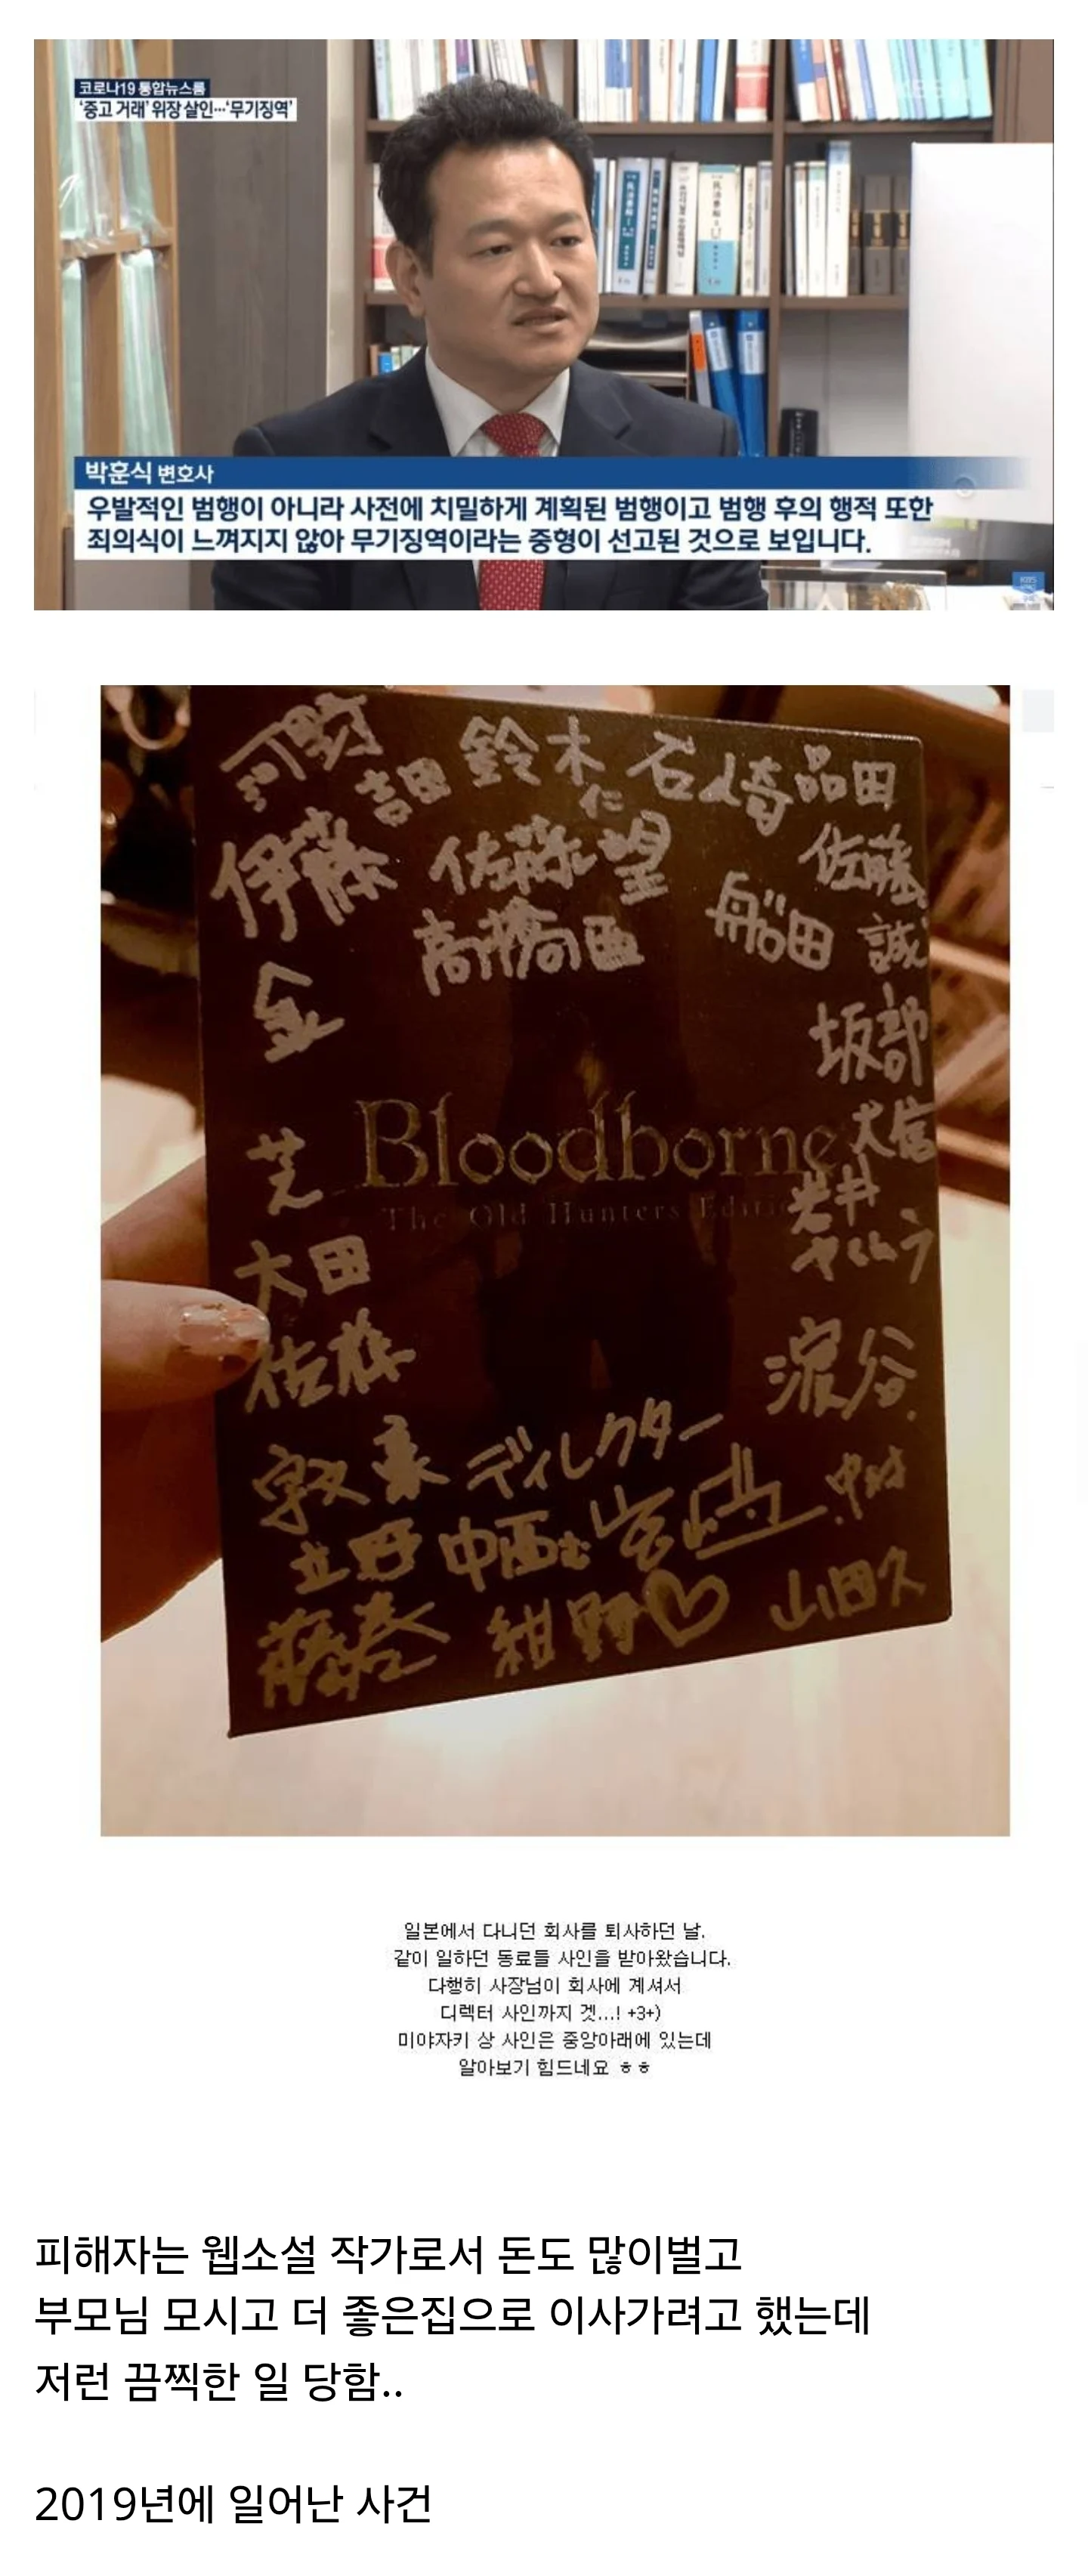 코로나19 통합뉴스룸
'중고 거래' 위장 살인…'무기징역'
박훈식 변호사
우발적인 범행이 아니라 사전에 치밀하게 계획된 범행이고 범행 후의 행적 또한
죄의식이 느껴지지 않아 무기징역이라는 중형이 선고된 것으로 보입니다.
KBS
河野
吉田
鈴木
仁
石崎
品田
伊藤
佐藤望
佐藤
誠
高橋
船田
金
坂部
大信
芝
Bloodborne
The Old Hunters Edition
岩井
大田
佐族
淀谷
ディレクター
立野
中西
宮崎
中村
藤巻
紺野♡
山田久
일본에서 다니던 회사를 퇴사하던 날.
같이 일하던 동료들 사인을 받아왔습니다.
다행히 사장님이 회사에 계셔서
디렉터 사인까지 겟...! +3+)
미야자키 상 사인은 중앙아래에 있는데
알아보기 힘드네요 ㅎㅎ
피해자는 웹소설 작가로서 돈도 많이벌고
부모님 모시고 더 좋은집으로 이사가려고 했는데
저런 끔찍한 일 당함..
2019년에 일어난 사건